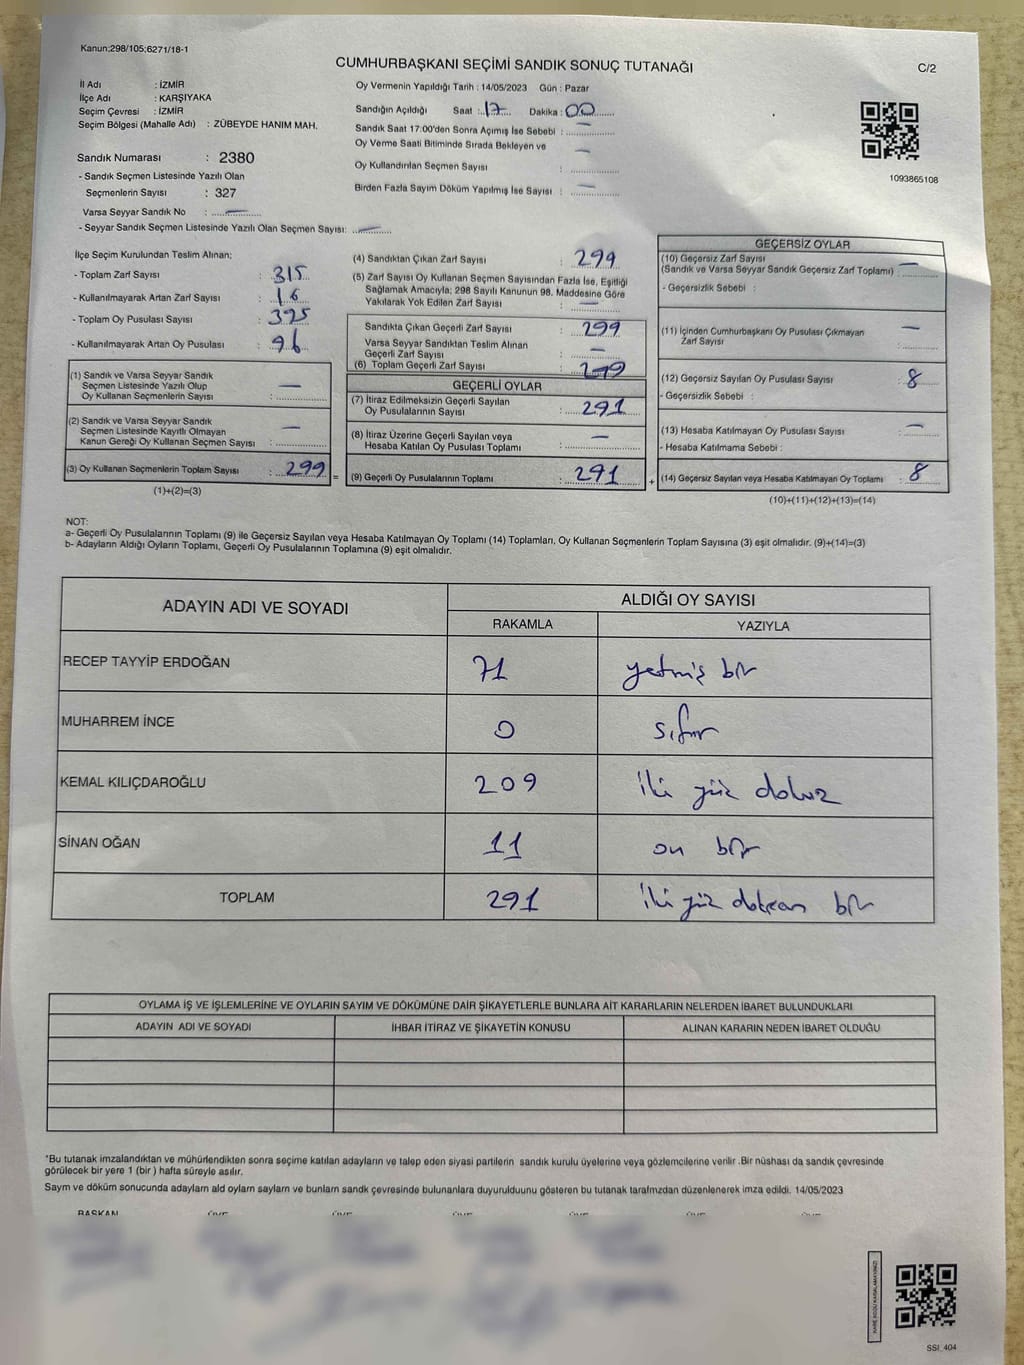 Kanun:298/105;6271/18-1
CUMHURBAŞKANI SEÇİMİ SANDIK SONUÇ TUTANAĞI
C/2
İl Adı : İZMİR
İlçe Adı : KARŞIYAKA
Seçim Çevresi : İZMİR
Seçim Bölgesi (Mahalle Adı) : ZÜBEYDE HANIM MAH.
Sandık Numarası : 2380
- Sandık Seçmen Listesinde Yazılı Olan
Seçmenlerin Sayısı : 327
Varsa Seyyar Sandık No : —
- Seyyar Sandık Seçmen Listesinde Yazılı Olan Seçmen Sayısı: —
Oy Vermenin Yapıldığı Tarih : 14/05/2023 Gün : Pazar
Sandığın Açıldığı Saat : 17 Dakika : 00
Sandık Saat 17:00'den Sonra Açımış İse Sebebi : —
Oy Verme Saati Bitiminde Sırada Bekleyen ve
Oy Kullandırılan Seçmen Sayısı : —
Birden Fazla Sayım Döküm Yapılmış İse Sayısı : —
1093865108
İlçe Seçim Kurulundan Teslim Alınan:
- Toplam Zarf Sayısı : 315
- Kullanılmayarak Artan Zarf Sayısı : 16
- Toplam Oy Pusulası Sayısı : 395
- Kullanılmayarak Artan Oy Pusulası : 96
(1) Sandık ve Varsa Seyyar Sandık
Seçmen Listesinde Yazılı Olup
Oy Kullanan Seçmenlerin Sayısı : —
(2) Sandık ve Varsa Seyyar Sandık
Seçmen Listesinde Kayıtlı Olmayan
Kanun Gereği Oy Kullanan Seçmen Sayısı : —
(3) Oy Kullanan Seçmenlerin Toplam Sayısı : 299
(1)+(2)=(3)
=
(4) Sandıktan Çıkan Zarf Sayısı : 299
(5) Zarf Sayısı Oy Kullanan Seçmen Sayısından Fazla İse, Eşitliği
Sağlamak Amacıyla; 298 Sayılı Kanunun 98. Maddesine Göre
Yakılarak Yok Edilen Zarf Sayısı : —
Sandıkta Çıkan Geçerli Zarf Sayısı : 299
Varsa Seyyar Sandıktan Teslim Alınan
Geçerli Zarf Sayısı : —
(6) Toplam Geçerli Zarf Sayısı : 299
GEÇERLİ OYLAR
(7) İtiraz Edilmeksizin Geçerli Sayılan
Oy Pusulalarının Sayısı : 291
(8) İtiraz Üzerine Geçerli Sayılan veya
Hesaba Katılan Oy Pusulası Toplamı : —
(9) Geçerli Oy Pusulalarının Toplamı : 291
+
GEÇERSİZ OYLAR
(10) Geçersiz Zarf Sayısı
(Sandık ve Varsa Seyyar Sandık Geçersiz Zarf Toplamı) : —
- Geçersizlik Sebebi :
(11) İçinden Cumhurbaşkanı Oy Pusulası Çıkmayan
Zarf Sayısı : —
(12) Geçersiz Sayılan Oy Pusulası Sayısı : 8
- Geçersizlik Sebebi :
(13) Hesaba Katılmayan Oy Pusulası Sayısı : —
- Hesaba Katılmama Sebebi :
(14) Geçersiz Sayılan veya Hesaba Katılmayan Oy Toplamı : 8
(10)+(11)+(12)+(13)=(14)
NOT:
a- Geçerli Oy Pusulalarının Toplamı (9) ile Geçersiz Sayılan veya Hesaba Katılmayan Oy Toplamı (14) Toplamları, Oy Kullanan Seçmenlerin Toplam Sayısına (3) eşit olmalıdır. (9)+(14)=(3)
b- Adayların Aldığı Oyların Toplamı, Geçerli Oy Pusulalarının Toplamına (9) eşit olmalıdır.
ADAYIN ADI VE SOYADI
ALDIĞI OY SAYISI
RAKAMLA YAZIYLA
RECEP TAYYİP ERDOĞAN 71 yetmiş bir
MUHARREM İNCE 0 sıfır
KEMAL KILIÇDAROĞLU 209 iki yüz dokuz
SİNAN OĞAN 11 on bir
TOPLAM 291 iki yüz doksan bir
OYLAMA İŞ VE İŞLEMLERİNE VE OYLARIN SAYIM VE DÖKÜMÜNE DAİR ŞİKAYETLERLE BUNLARA AİT KARARLARIN NELERDEN İBARET BULUNDUKLARI
ADAYIN ADI VE SOYADI İHBAR İTİRAZ VE ŞİKAYETİN KONUSU ALINAN KARARIN NEDEN İBARET OLDUĞU
*Bu tutanak imzalandıktan ve mühürlendikten sonra seçime katılan adayların ve talep eden siyasi partilerin sandık kurulu üyelerine veya gözlemcilerine verilir .Bir nüshası da sandık çevresinde
görülecek bir yere 1 (bir ) hafta süreyle asılır.
Sayım ve döküm sonucunda adayların ald oyların sayların ve bunların sandk çevresinde bulunanlara duyurulduunu gösteren bu tutanak tarafmzdan düzenlenerek imza edildi. 14/05/2023
BAŞKAN ÜYE ÜYE ÜYE ÜYE ÜYE ÜYE
KARE KODU KARALAMAYINIZ!
SSI_404